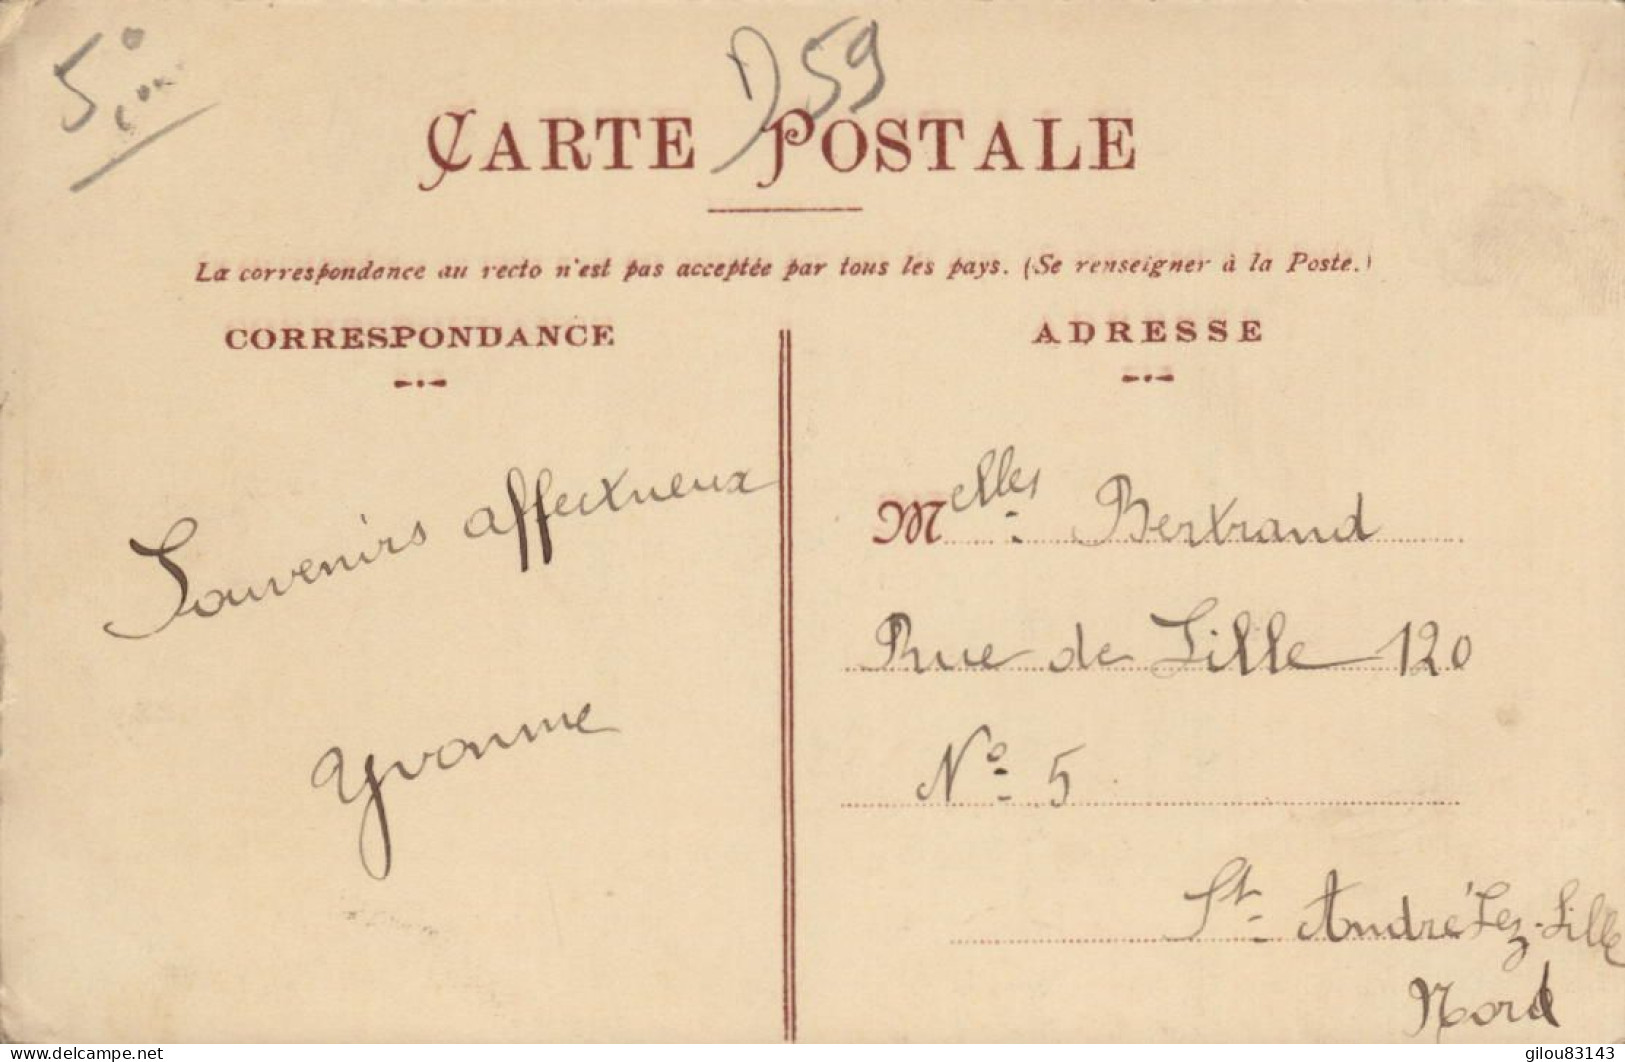 D59
CARTE POSTALE
La correspondance au recto n'est pas acceptée par tous les pays. (Se renseigner à la Poste.)
CORRESPONDANCE
Souvenirs affectueux
Yvonne
ADRESSE
Melles Bertrand
Rue de Lille 120
No 5
St André Lez-Lille
Nord
www.delcampe.net
gilou83143